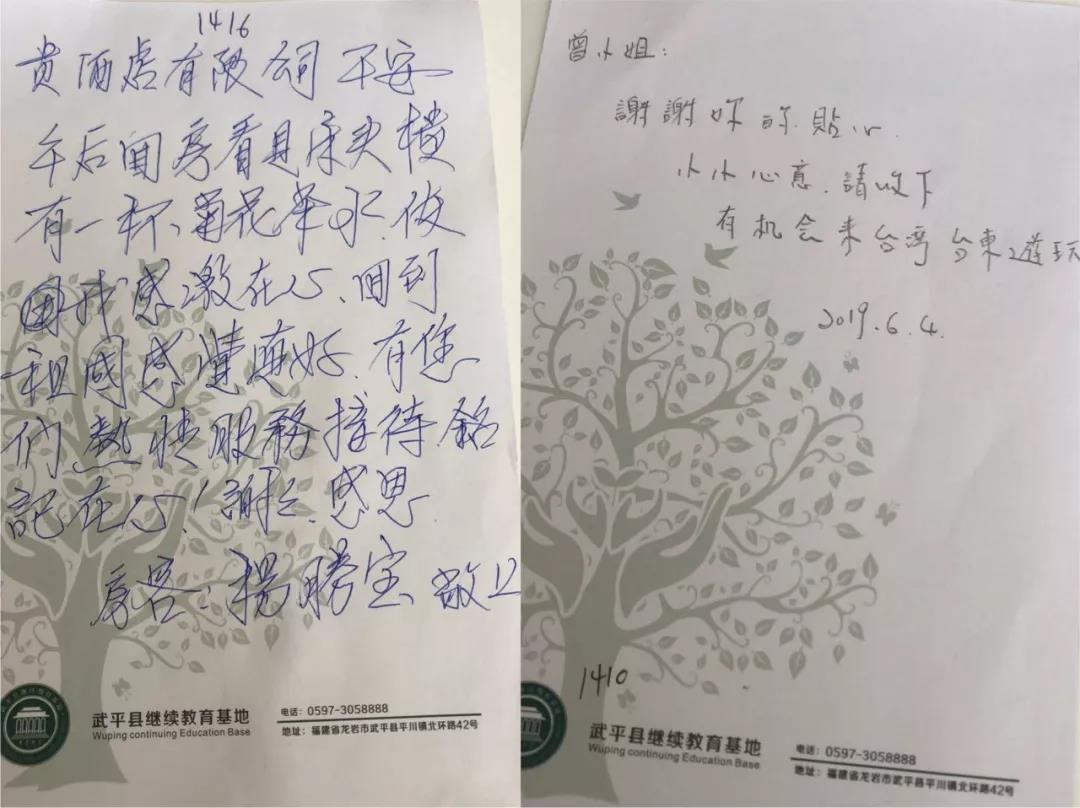 1416
贵酒店有限公司 平安
午后回房看見床头櫃
有一杯、菊花茶水.使
我感激在心、回到
祖国感情真好.有您
们热情服務接待.銘
記在心!謝々.感恩
房客:楊勝宝 敬上
武平县继续教育基地
Wuping continuing Education Base
电话:0597-3058888
地址:福建省龙岩市武平县平川镇北环路42号
曾小姐:
謝謝妳的貼心.
小小心意.請收下
有机会来台湾台東遊玩
2019.6.4.
1410
武平县继续教育基地
Wuping continuing Education Base
电话:0597-3058888
地址:福建省龙岩市武平县平川镇北环路42号